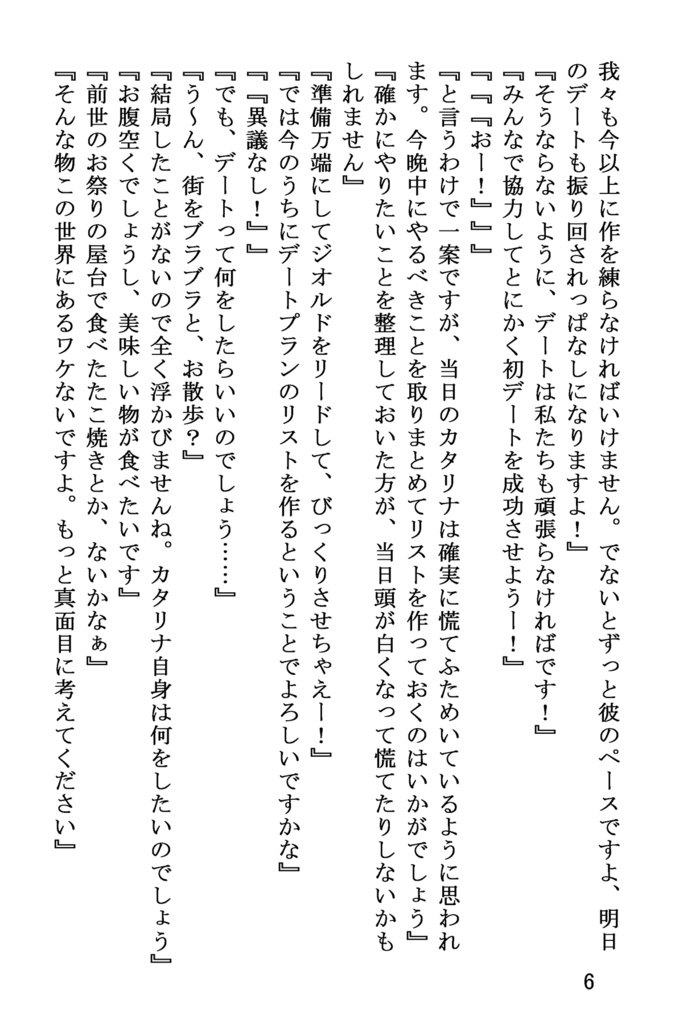 我々も今以上に作を練らなければいけません。でないとずっと彼のペースですよ、明日
のデートも振り回されっぱなしになりますよ！』
『そうならないように、デートは私たちも頑張らなければです！』
『みんなで協力してとにかく初デートを成功させようー！』
『『『おー！』』』
『と言うわけで一案ですが、当日のカタリナは確実に慌てふためいているように思われ
ます。今晩中にやるべきことを取りまとめてリストを作っておくのはいかがでしょう』
『確かにやりたいことを整理しておいた方が、当日頭が白くなって慌てたりしないかも
しれません』
『準備万端にしてジオルドをリードして、びっくりさせちゃえー！』
『では今のうちにデートプランのリストを作るということでよろしいですかな』
『『異議なし！』』
『でも、デートって何をしたらいいのでしょう……』
『う～ん、街をブラブラと、お散歩？』
『結局したことがないので全く浮かびませんね。カタリナ自身は何をしたいのでしょう』
『お腹空くでしょうし、美味しい物が食べたいです』
『前世のお祭りの屋台で食べたたこ焼きとか、ないかなぁ』
『そんな物この世界にあるワケないですよ。もっと真面目に考えてください』
6